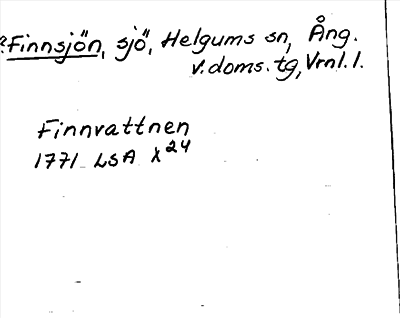 ?Finnsjön, sjö, Helgums sn, Ång.
v. doms. tg, Vrnl. l.
Finnvattnen
1771 LSA X24